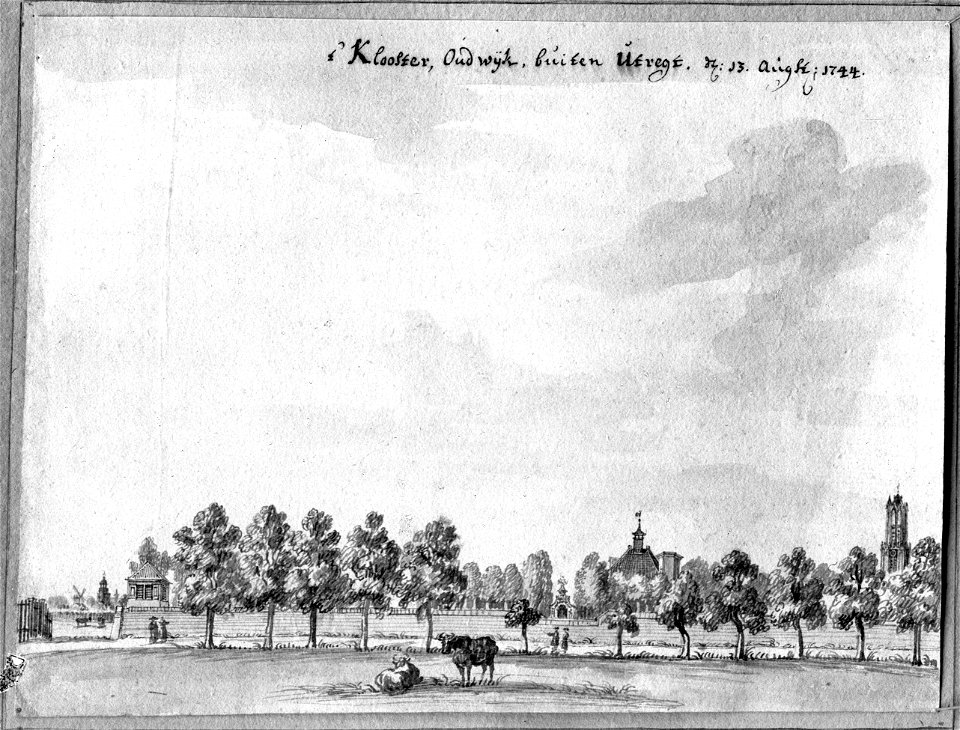 t' Klooster, Oudwÿk, buiten Utregt. N: 13. Augst; 1744.